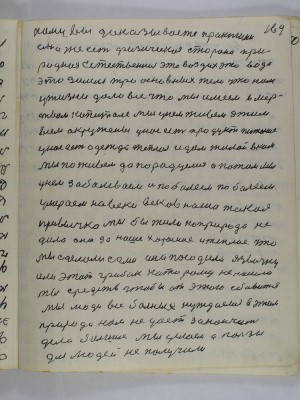 169
кому вы доказываете практике
она же есть физическая сторона при-
родная Естественная это воздух это вода
это земля три основных тела что нам
у жизни дала все что мы имеем в мер-
твом капитале мы у нем живем этим
всем окружены у нас есть продукт питание
у нас есть одежда теплая и дом жилой в нем
мы поживем да порадуемся а потом мы
у нем заболеваем и поболеем поболеем
умираем на веки веков наша такая
привычка мы бы жили но природа не
дала она за наше хорошее и теплое что
мы сделали сами она посадила язвочку
или этот грибок которому не нашли
мы средств чтобы от этого избавится
мы люди все больные нуждаемся в этом
природа нам не дает закончить
дела больше мы сделали а пользы
для людей не получили